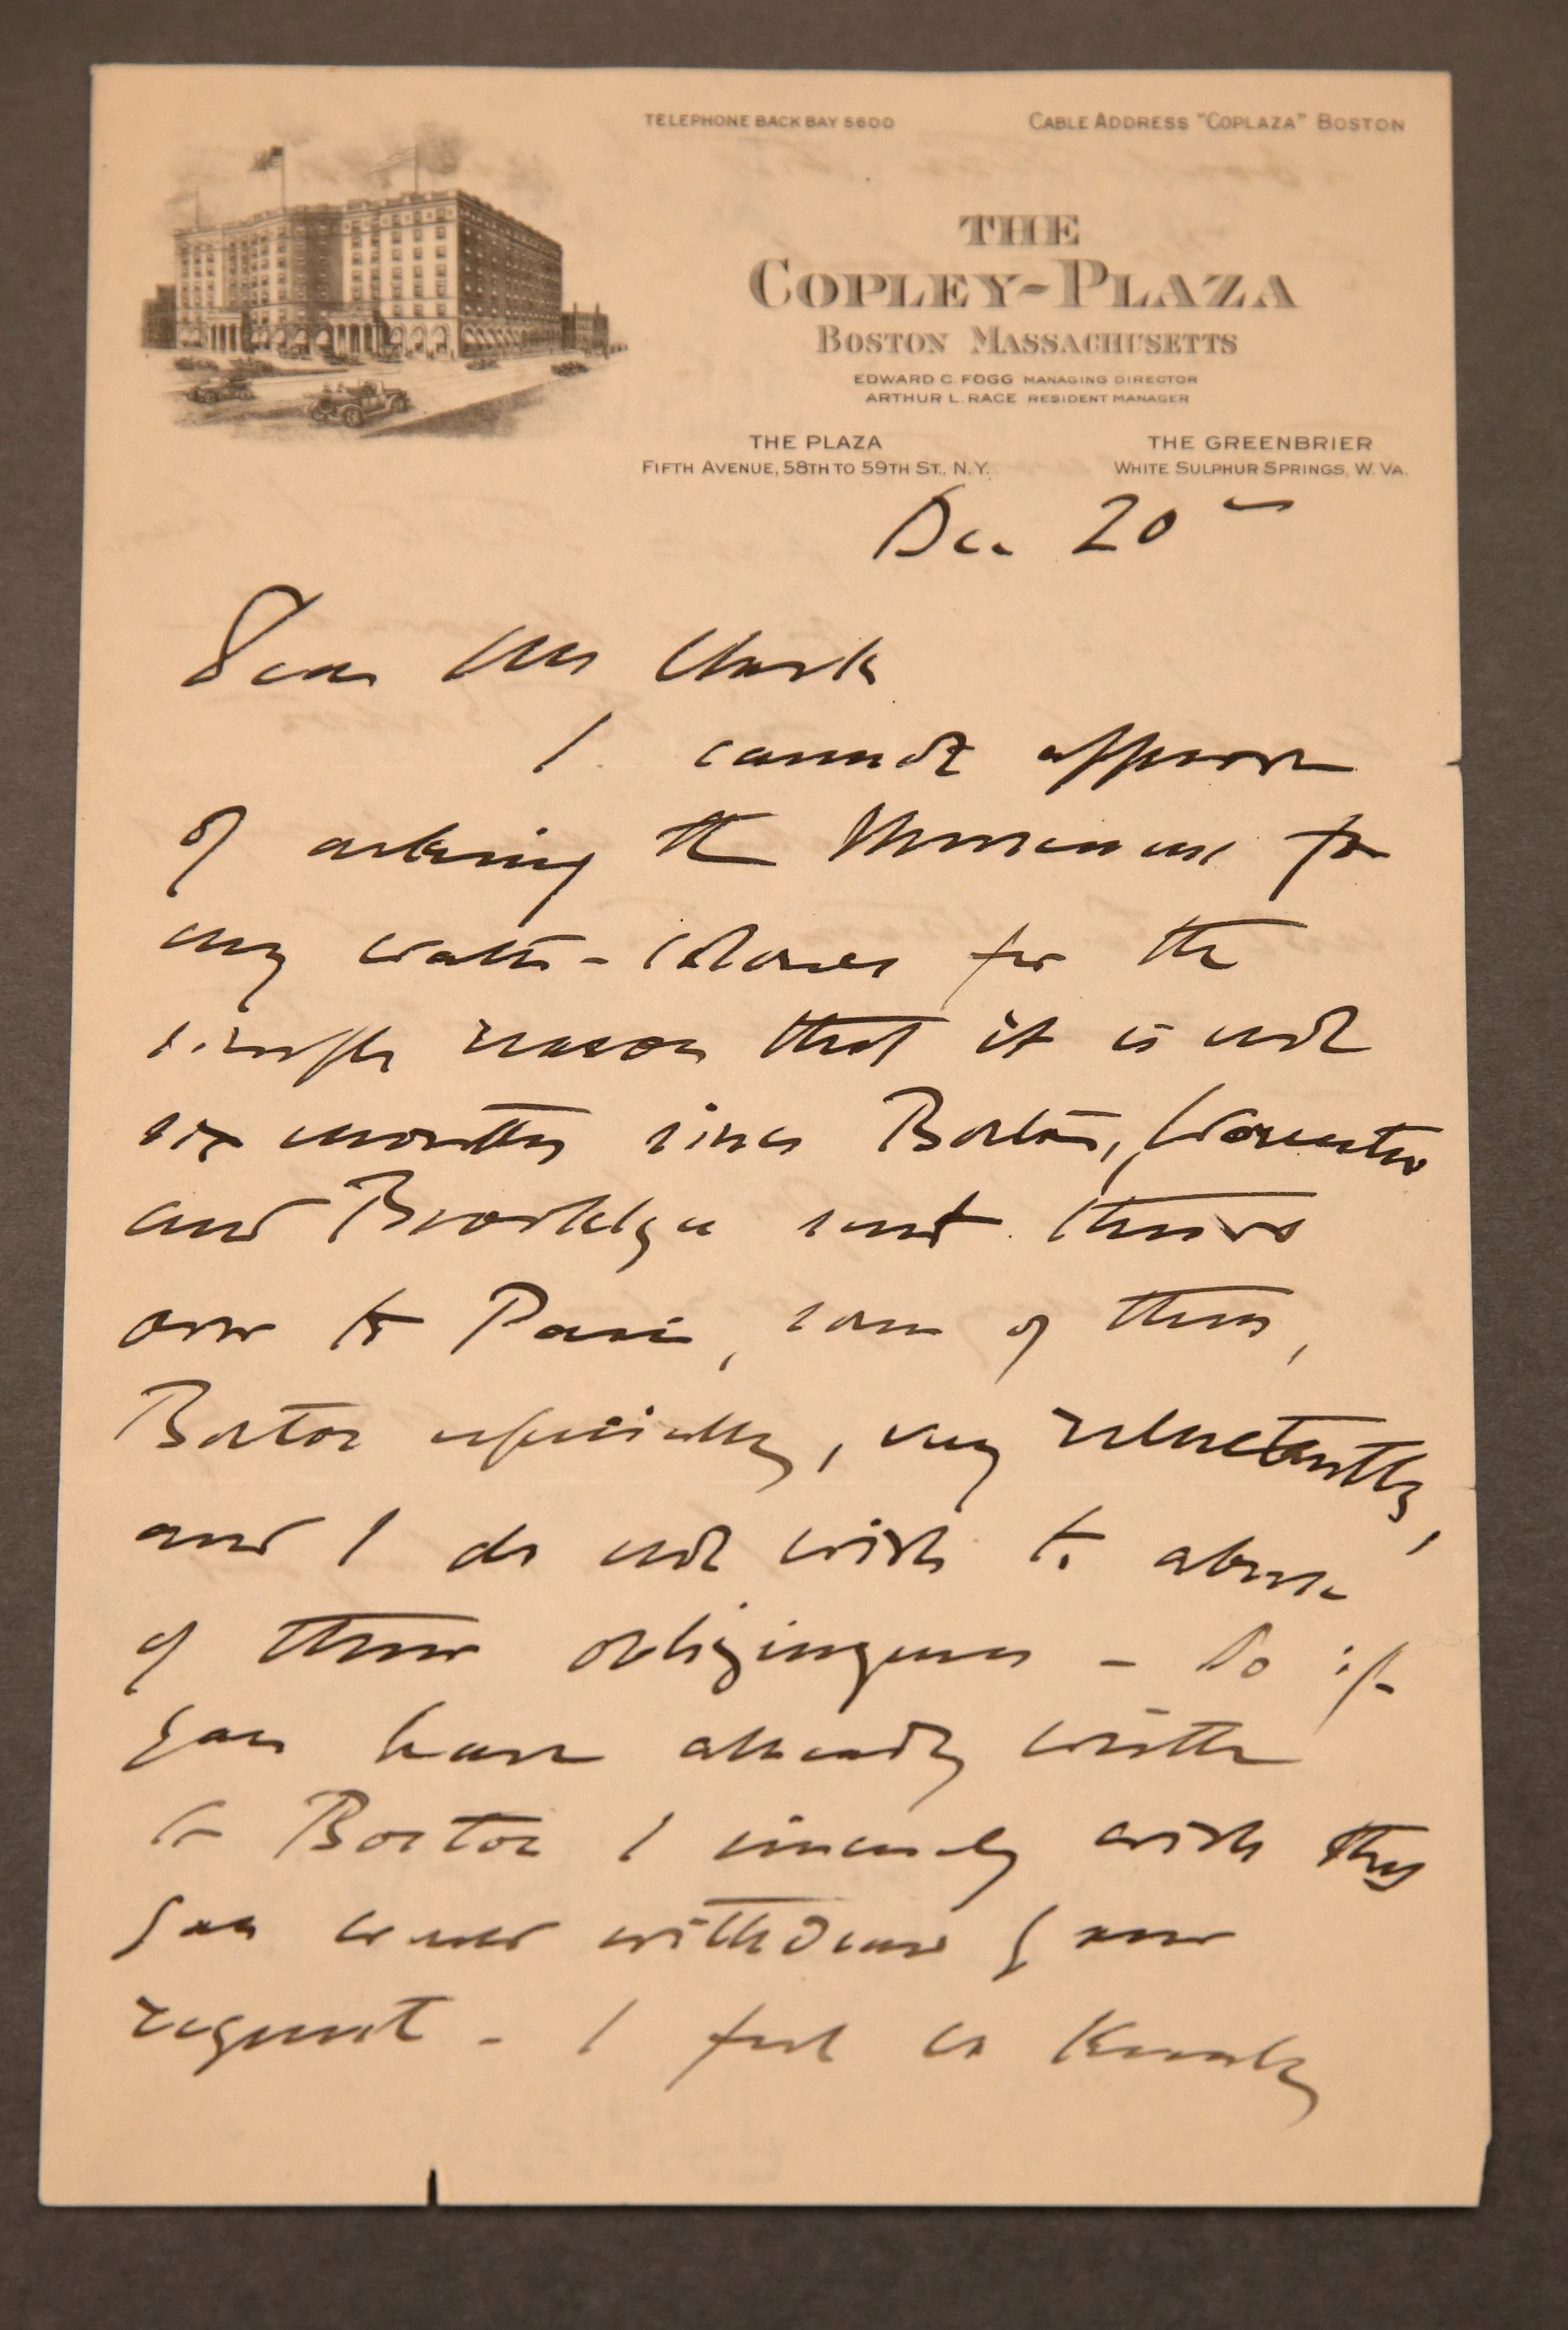 TELEPHONE BACK BAY 5600
CABLE ADDRESS "COPLAZA" BOSTON
THE
COPLEY-PLAZA
BOSTON MASSACHUSETTS
EDWARD C. FOGG MANAGING DIRECTOR
ARTHUR L. RACE RESIDENT MANAGER
THE PLAZA
FIFTH AVENUE, 58TH TO 59TH ST., N.Y.
THE GREENBRIER
WHITE SULPHUR SPRINGS, W. VA.
Dec. 20
Dear Mr Clark
I cannot approve
of asking the Museums for
my water-colours for the
simple reason that it is not
six months since Boston, Worcester
and Brooklyn sent theirs
over to Paris, some of them,
Boston especially, very reluctantly,
and I do not wish to abuse
of their obligingness - So if
you have already written
to Boston I sincerely wish that
you would withdraw your
request - I feel so keenly